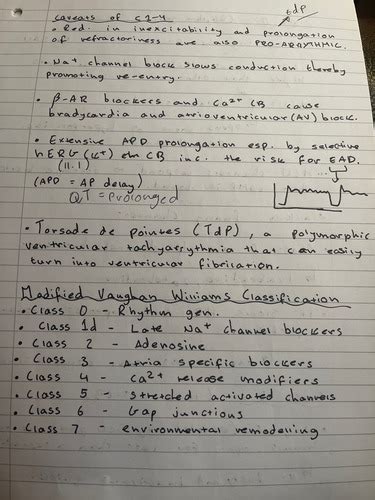 caveats of c1-4
tdP
• Red. in inexcitability and prolongation
of refractoriness are also PRO-ARRYTHMIC.
• Na⁺ channel block slows conduction thereby
promoting re-entry.
• β-AR blockers and Ca²⁺ CB cause
bradycardia and atrioventricular (AV) block.
• Extensive APD prolongation esp. by selective
hERG (K⁺) chn CB inc. the risk for EAD.
(11.1)
(APD = AP delay)
QT = prolonged
• Torsade de pointes (TdP), a polymorphic
ventricular tachyarrythmia that can easily
turn into ventricular fibrilation.
Modified Vaughan Williams Classification
• Class 0 - Rhythm gen.
• Class 1d - Late Na⁺ channel blockers
• Class 2 - Adenosine
• Class 3 - Atria specific blockers
• Class 4 - Ca²⁺ release modifiers
• Class 5 - stretched activated channels
• Class 6 - Gap junctions
• Class 7 - environmental remodelling